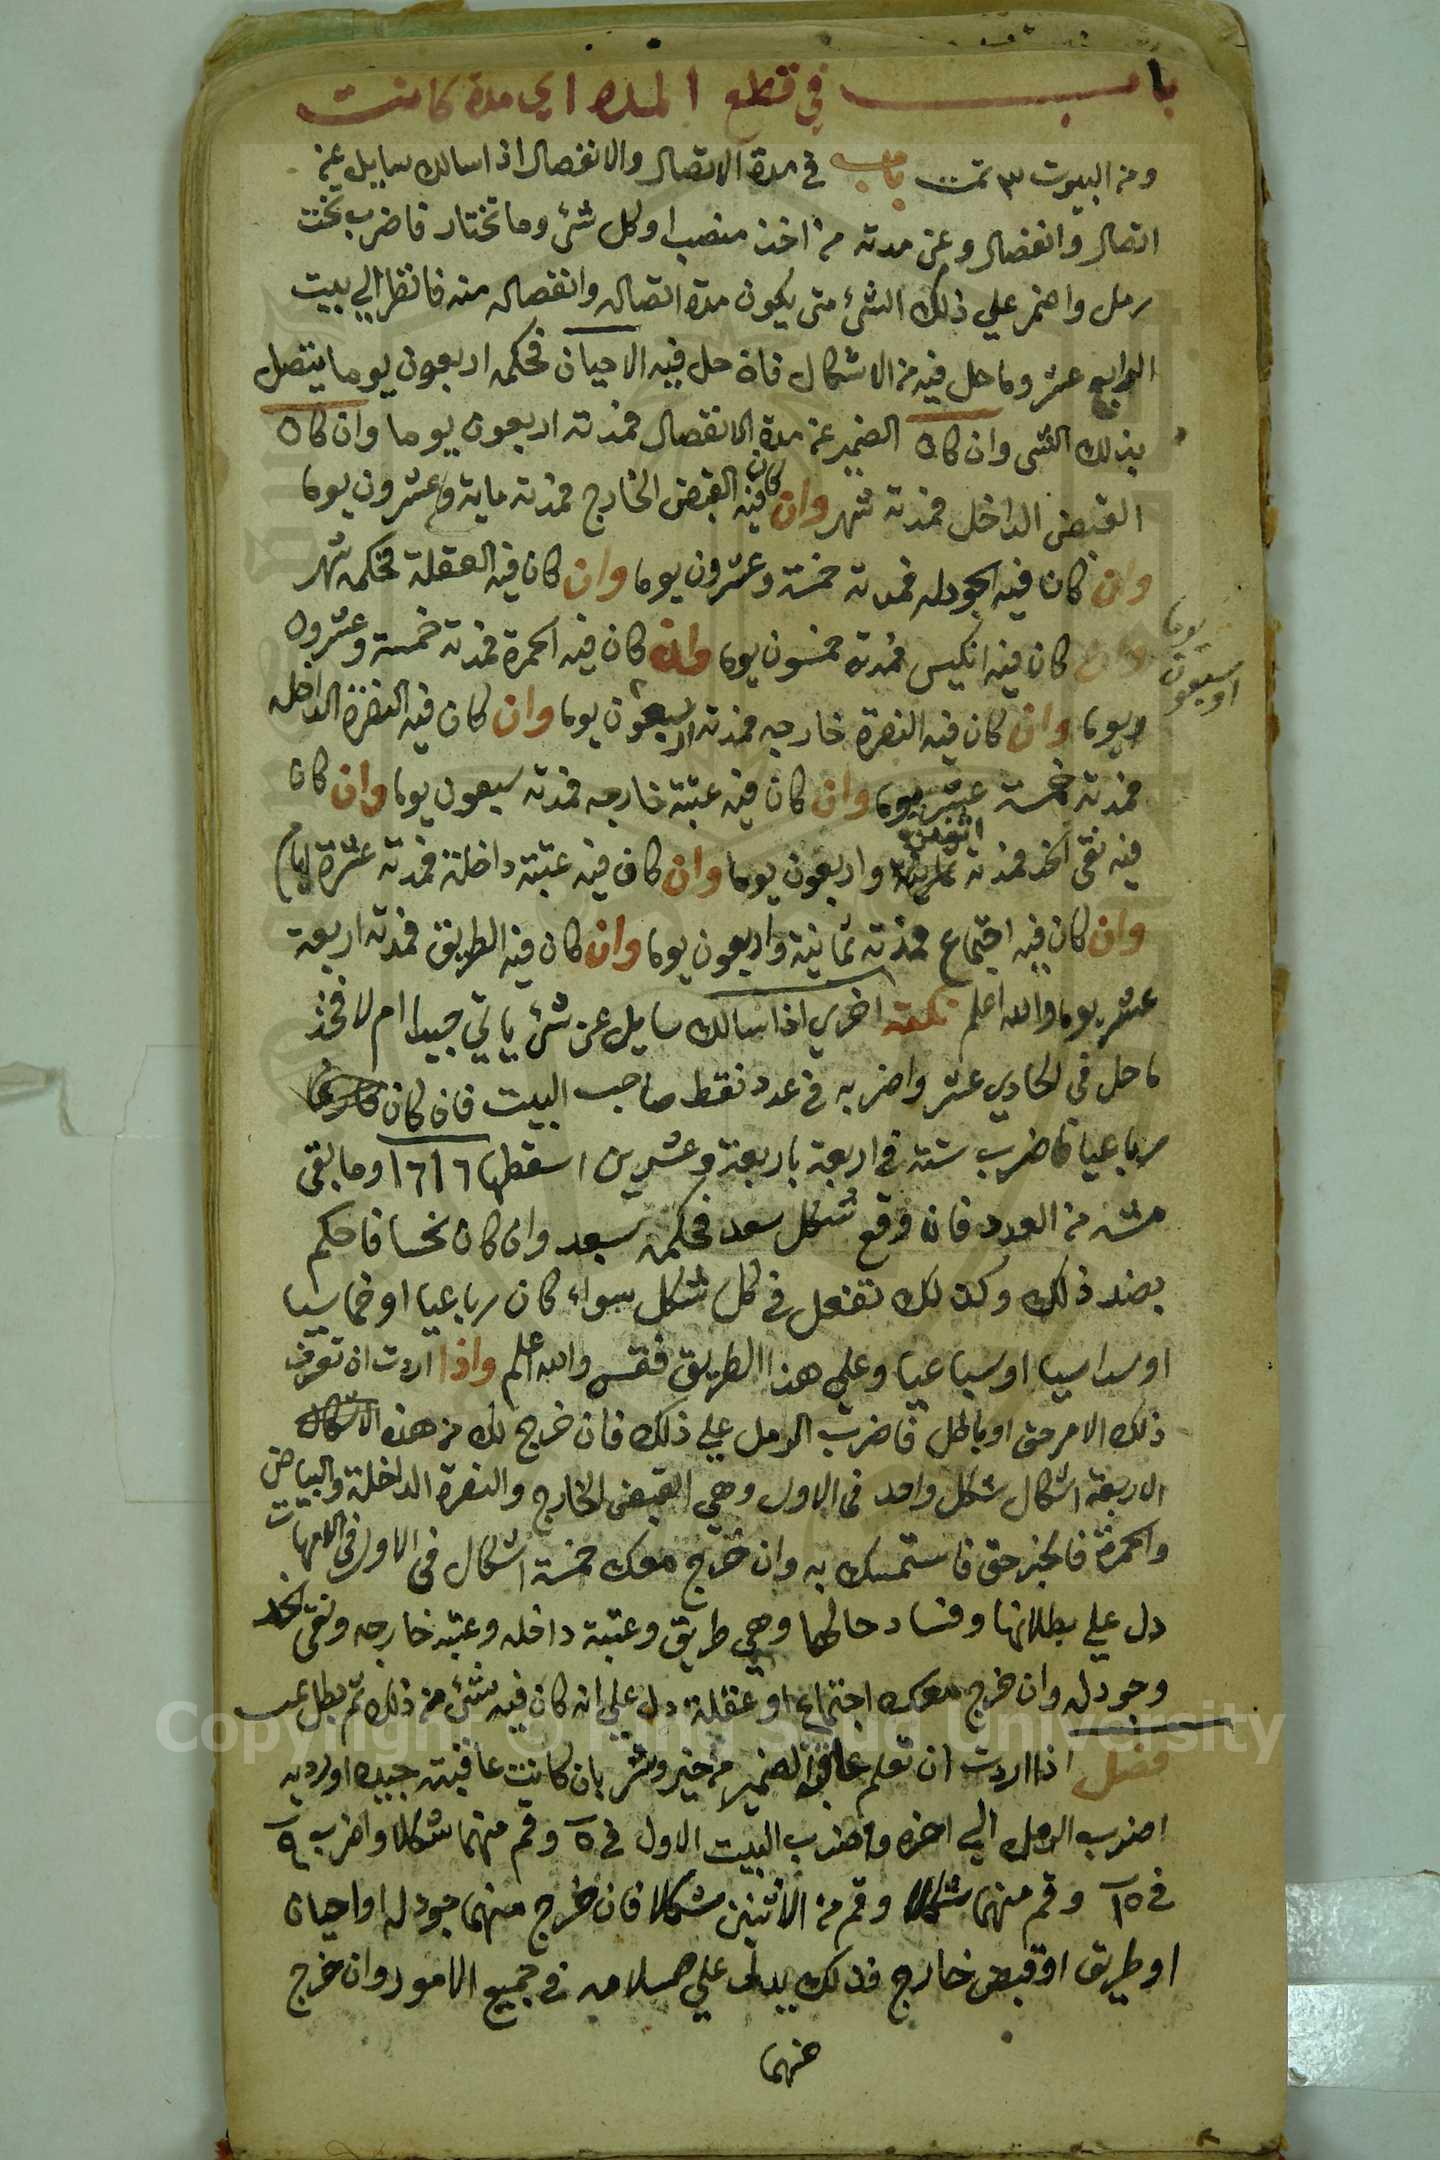 باب في قطع المده اي مدة كانت
ومن البيوت ٣ تمت باب في مدة الاتصال والانفصال اذا سالك سايل عن
اتصال وانفصال وعن مدته من اخذ منصب او كل شئ وما تختار فاضرب تخت
رمل واضمر علي ذلك الشئ متى يكون مدة اتصاله وانفصاله منه فانظر الي بيت
الرابع عشر وما حل فيه من الاشكال فان حل فيه الاحيان فحكمه اربعون يوما يتصل
بذلك الشى وان كان الضمير عن مدة الانفصال فمدته اربعون يوما وان كان
القبض الداخل فمدته شهر وان كان فيه القبض الخارج فمدته ماية وعشرون يوما
وان كان فيه الجودله فمدته خمسة وعشرون يوما وان كان فيه العقلة فحكمه شهر
وان كان فيه انكيس فمدته خمسون يوما وان كان فيه الحمرة فمدته خمسة وعشرون
يوما
او سبعون
يوما وان كان فيه النصرة خارجه فمدته اربعون يوما وان كان فيه النصرة الداخله
فمدته خمسة عشر يوما وان كان فيه عتبة خارجه فمدته سبعون يوما وان كان
فيه نقى الخد فمدته اثنين واربعون يوما وان كان فيه عتبة داخلة فمدته عشرة ايام
وان كان فيه اجتماع فمدته ثمانية واربعون يوما وان كان فيه الطريق فمدته اربعة
عشر يوما والله اعلم نكتة اخري اذا سالك سايل عن شئ ياتي جيدا ام لا فخذ
ما حل في الحادي عشر واضربه في عدد نقط صاحب البيت فان كان
رباعيا فاضرب ستة في اربعة باربعة وعشرين اسقطها ١٦١٦ وما بقى
مشه من العدد فان وقع شكل سعد فحكمه سعد وان كان نحسا فاحكم
بضد ذلك وكذلك تفعل في كل شكل سواء كان رباعيا او خماسيا
او سداسيا او سباعيا وعلي هذا الطريق فقس والله اعلم واذا اردت ان تعرف
ذلك الامر حق او باطل فاضرب الرمل علي ذلك فان خرج لك من هذه الاشكال
الاربعة اشكال شكل واحد في الاول وهي القبض الخارج والنصرة الداخلة والبياض
والحمرة فالخبر حق فاستمسك به وان خرج معك خمسة اشكال في الاول في الامهات
دل علي بطلانها وفساد حالهما وهي طريق وعتبة داخله وعتبه خارجه ونقى الخد
وجودله وان خرج معك اجتماع او عقلة دل علي انه كان فيه شئ من ذلك ثم بطل عب
فصل اذا اردت ان تعلم عاقبة الضمير من خير وشر بان كانت عاقبته جيده او رديه
اضرب الرمل الي اخره واضرب البيت الاول في ٥ وقم منهما شكلا واضرب ٩
في ١٥ وقم منهما شكلا وقم من الاثنين شكلا فان خرج منهما جودله او احيان
او طريق او قبض خارج فذلك يدل علي سلامه في جميع الامور وان خرج
منهما
Copyright © King Saud University